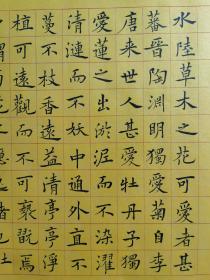 水陸草木之花可愛者甚
蕃晉陶淵明獨愛菊自李
唐來世人甚愛牡丹予獨
愛蓮之出淤泥而不染濯
清漣而不妖中通外直不
蔓不枝香遠益清亭亭淨
植可遠觀而不可褻翫焉